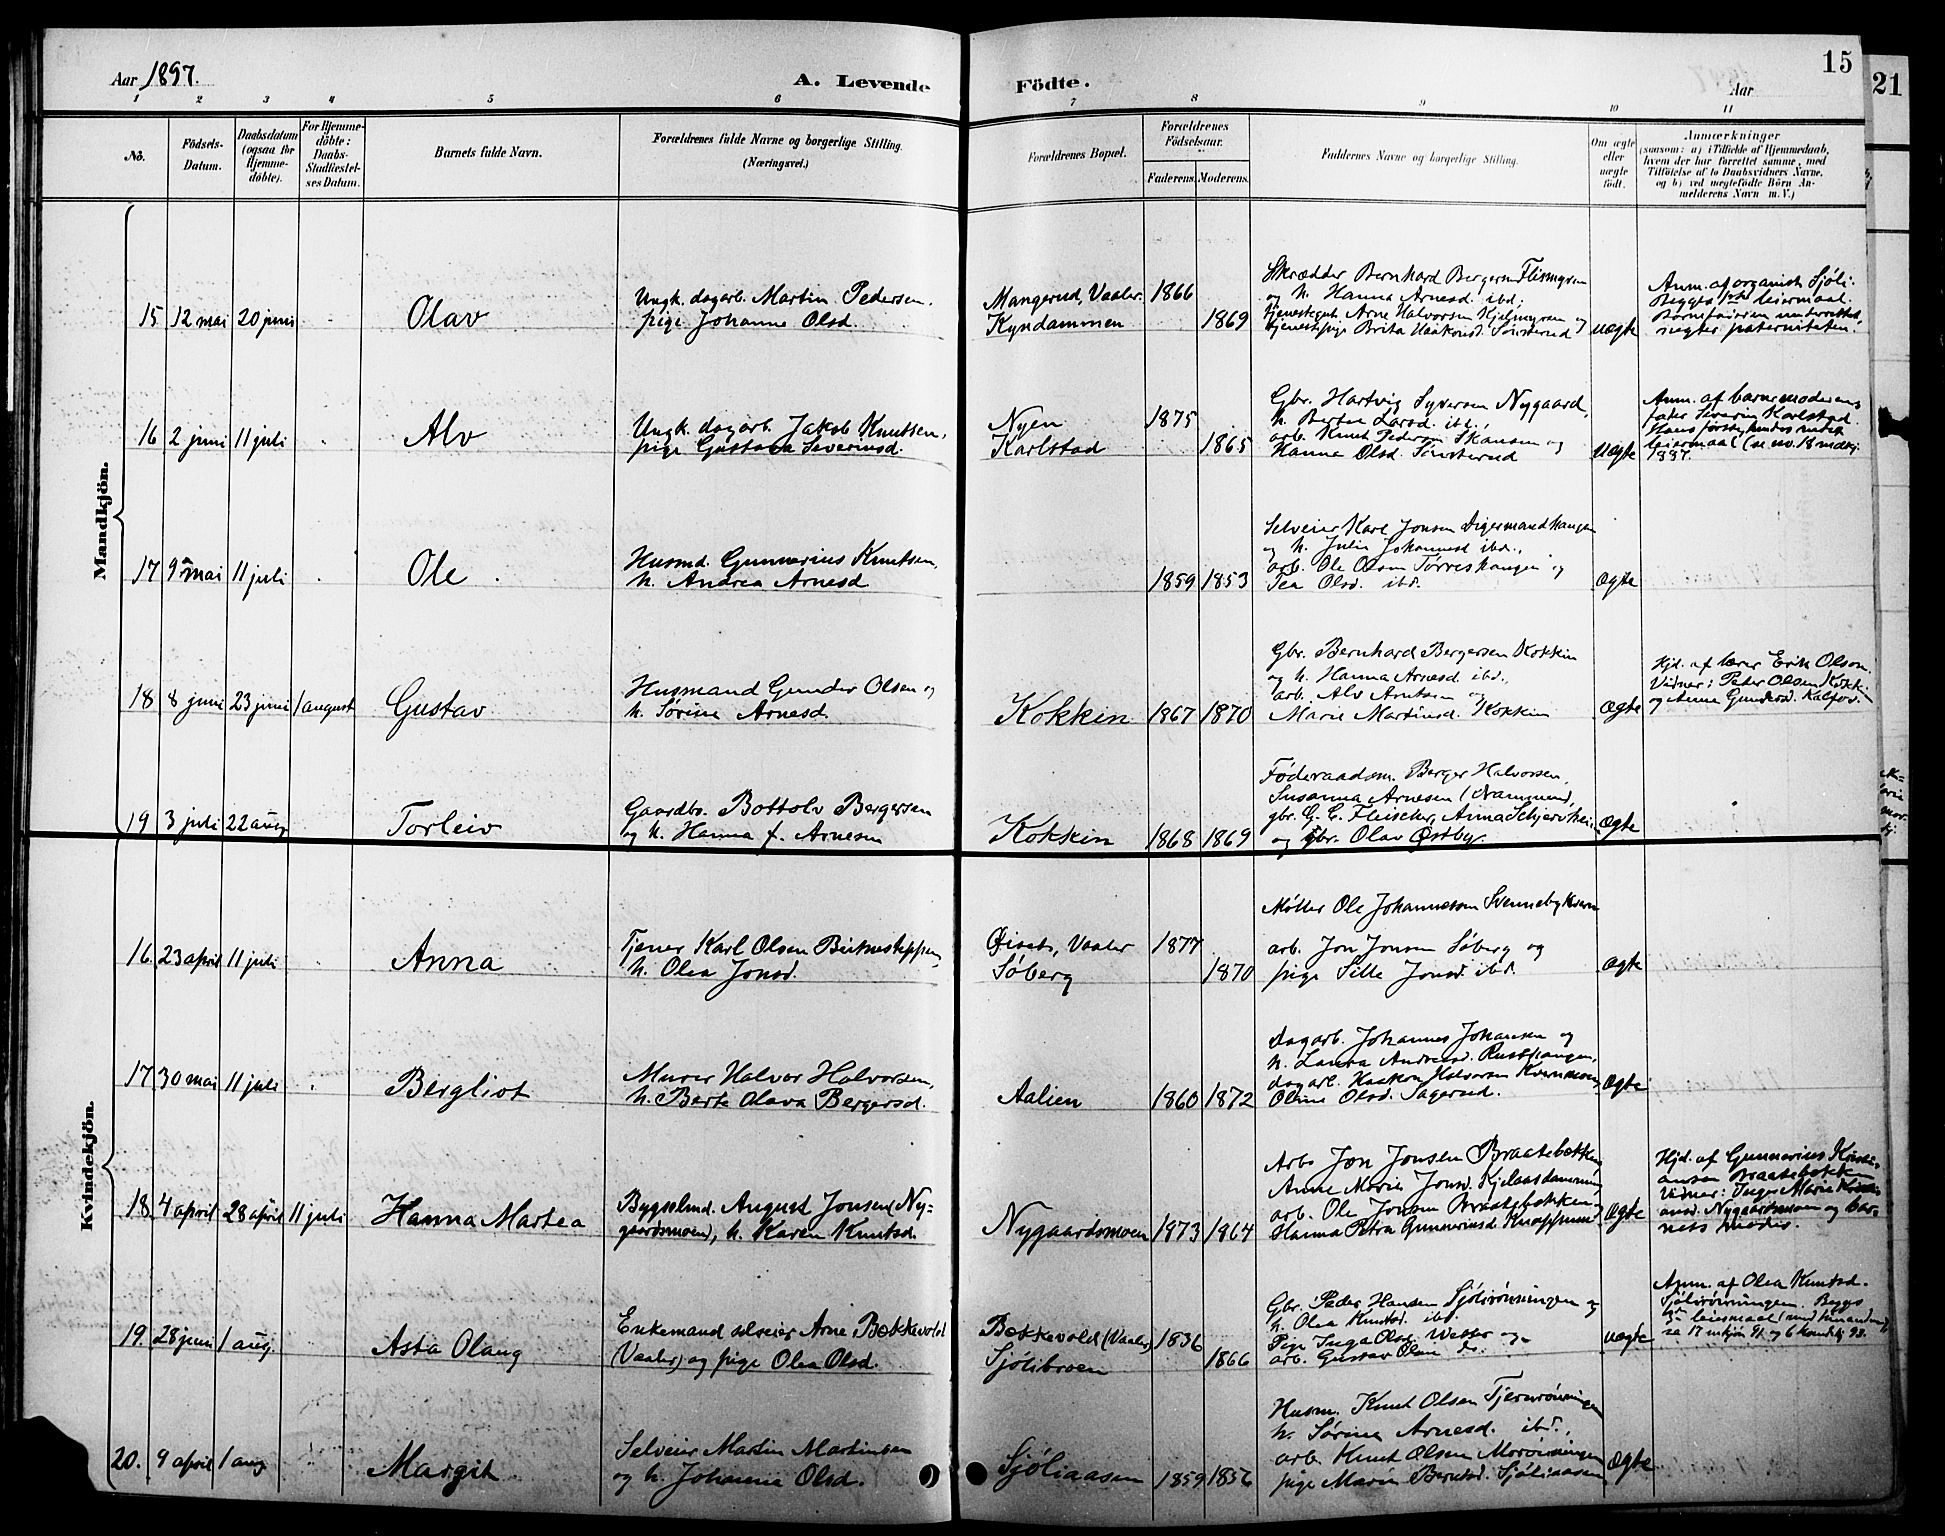 Aar 1897.
A. Levende Födte.
15
Aar
21
1 2 3 4 5 6 7 8 9 10 11
No.
Födsels-
Datum.
Daabsdatum
(ogsaa for
Hjemme-
döbte).
For Hjemme-
döbte:
Daabs-
Stadfæstel-
ses Datum.
Barnets fulde Navn.
Forældrenes fulde Navne og borgerlige Stilling.
(Næringsvei.)
Forældrenes Bopæl.
Forældrenes
Födselsaar.
Faderens. Moderens.
Faddernes Navne og borgerlige Stilling.
Om ægte
eller
uægte
födt.
Anmærkninger
(saasom: a) i Tilfælde af Hjemmedaab,
hvem der har forrettet samme, med
Tilföielse af to Daabsvidners Navne,
og b) ved uægtefödte Börn An-
melderens Navn m. V.)
Mandkjön.
15 12 mai 20 juni Olav
Ungk. dagarb. Martin Pedersen.
pige Johanne Olsd.
Mangerud, Vaaler.
Kyndammen
1866
1869
Skrædder Bernhard Bergersen Flismyren
og h. Hanna Arnesd. ibd.,
tjenestegut Arne Halvorsen Kjelmyren og
tjenestpige Brita Haakonsd. Sønsterud
uægte
Anm. af organist Sjöli.
Begges 1ste leiermaal.
Barnefaderen underrettet,
nægter paterniteten.
16 2 juni 11 juli Alv
Ungk. dagarb. Jakob Knutsen,
pige Gustava Severinsd.
Nyen
Karlstad
1875
1865
Gbr. Hartvig Syversen Nygaard,
h. Berthe Larsd. ibd.,
arb. Knut Pedersen Skansen og
Hanna Olsd. Sönsterud
uægte
Anm. af barnemoderens
fader Severin Karlstad
Hans förste, hendes andet
leiermaal
1887.
17 9 mai 11 juli Ole
Husmd. Gunnerius Knutsen,
h. Andrea Arnesd
1859 1853
Selveier Karl Jonsen Digermandhaugen
og h. Julie Johannesd ibd.,
arb. Ole Olsen Torreshaugen og
Tea Olsd. ibd.
ægte
18 8 juni 23 juni 1 august Gustav
Husmand Gunder Olsen og
h. Sørine Arnesd
Kokkin 1867 1870
Gbr. Bernhard Bergersen Kokkin
og h. Hanna Arnesd ibd.,
arb. Alv Arntsen og
Marie Martinsd. Kokkin
ægte
Hjd. af lærer Erik Olsen.
Vidner: Peter Olsen Kokkin
og Anne Gundersd. Kalfos.
19 3 juli 22 aug Torleiv
Gaardbr. Bottolv Bergersen
og h. Hanna f. Arnesen
Kokkin 1868 1869
Føderaadsm. Berger Halvorsen,
Susanna Arnesen
gbr. G. E. Fleischer, Anna Schjerven
og gbr. Olav Østby.
ægte
Kvindekjön.
16. 23 april 11 juli Anna
Tjener Karl Olsen
h. Olea Jonsd.
Öiset, Vaaler
Søberg
1877
1870
Møller Ole Johannesen Svenneby Kvern
arb. Jon Jonsen Søberg og
pige Sille Jonsd. ibd.
ægte
17 30 mai 11 juli Bergliot
Murer Halvor Halvorsen,
h. Berte Olava Bergersd.
Aalien 1860 1872
dagarb. Johannes Johansen og
h. Laura Andreasd. Russhaugen,
dagarb. Haakon Halvorsen Kvernmoen,
Oline Olsd. Sagerud.
ægte
18 4 april 28 april 11 juli Hanna Martea
Bygselmd. August Jonsen (Ny-
gardsmoen), h. Karen Knutsd.
Nygaardsmoen 1873 1864
Arb. Jon Jonsen Braatebækken,
Anne Marie Jonsd.
arb. Ole Jonsen Braatebækken,
Hanna Petra Gunneriusd.
ægte
Hjd. af Gunnerius Kristi-
ansen Braatebækken
Vidner: Inger Marie
Nygaardsmoen og bar-
nets moder.
19. 28 juni 1 aug. Asta Olaug
Enkemand selveier Arne Bækkevold
(Vaaler) og pige Olea Olsd.
Bækkevold (Vaaler)
Sjölibroen
1836
1866
Gbr. Peder Hansen Sjölirönningen og
h. Olea Knutsd. ibd.
Pige Inga Olsd.
arb. Gustav Olsen do.
uægte
Anm. af Olea Knutsd.
Sjölirönningen. Begges
3die leiermaal (med hinanden),
se 17 mkjön 91 og 6 kvindekj 93.
20. 9 april 1 aug Margit
Selveier Martin Martinsen
og h. Johanna Olsd.
Sjöliaasen 1859 1856
Husm. Knut Olsen Tjernrönningen
h. Sørine Arnesd. ibd.,
arb. Knut Olsen Morönningen
pige Marie Berntsd. Sjöliaasen
ægte